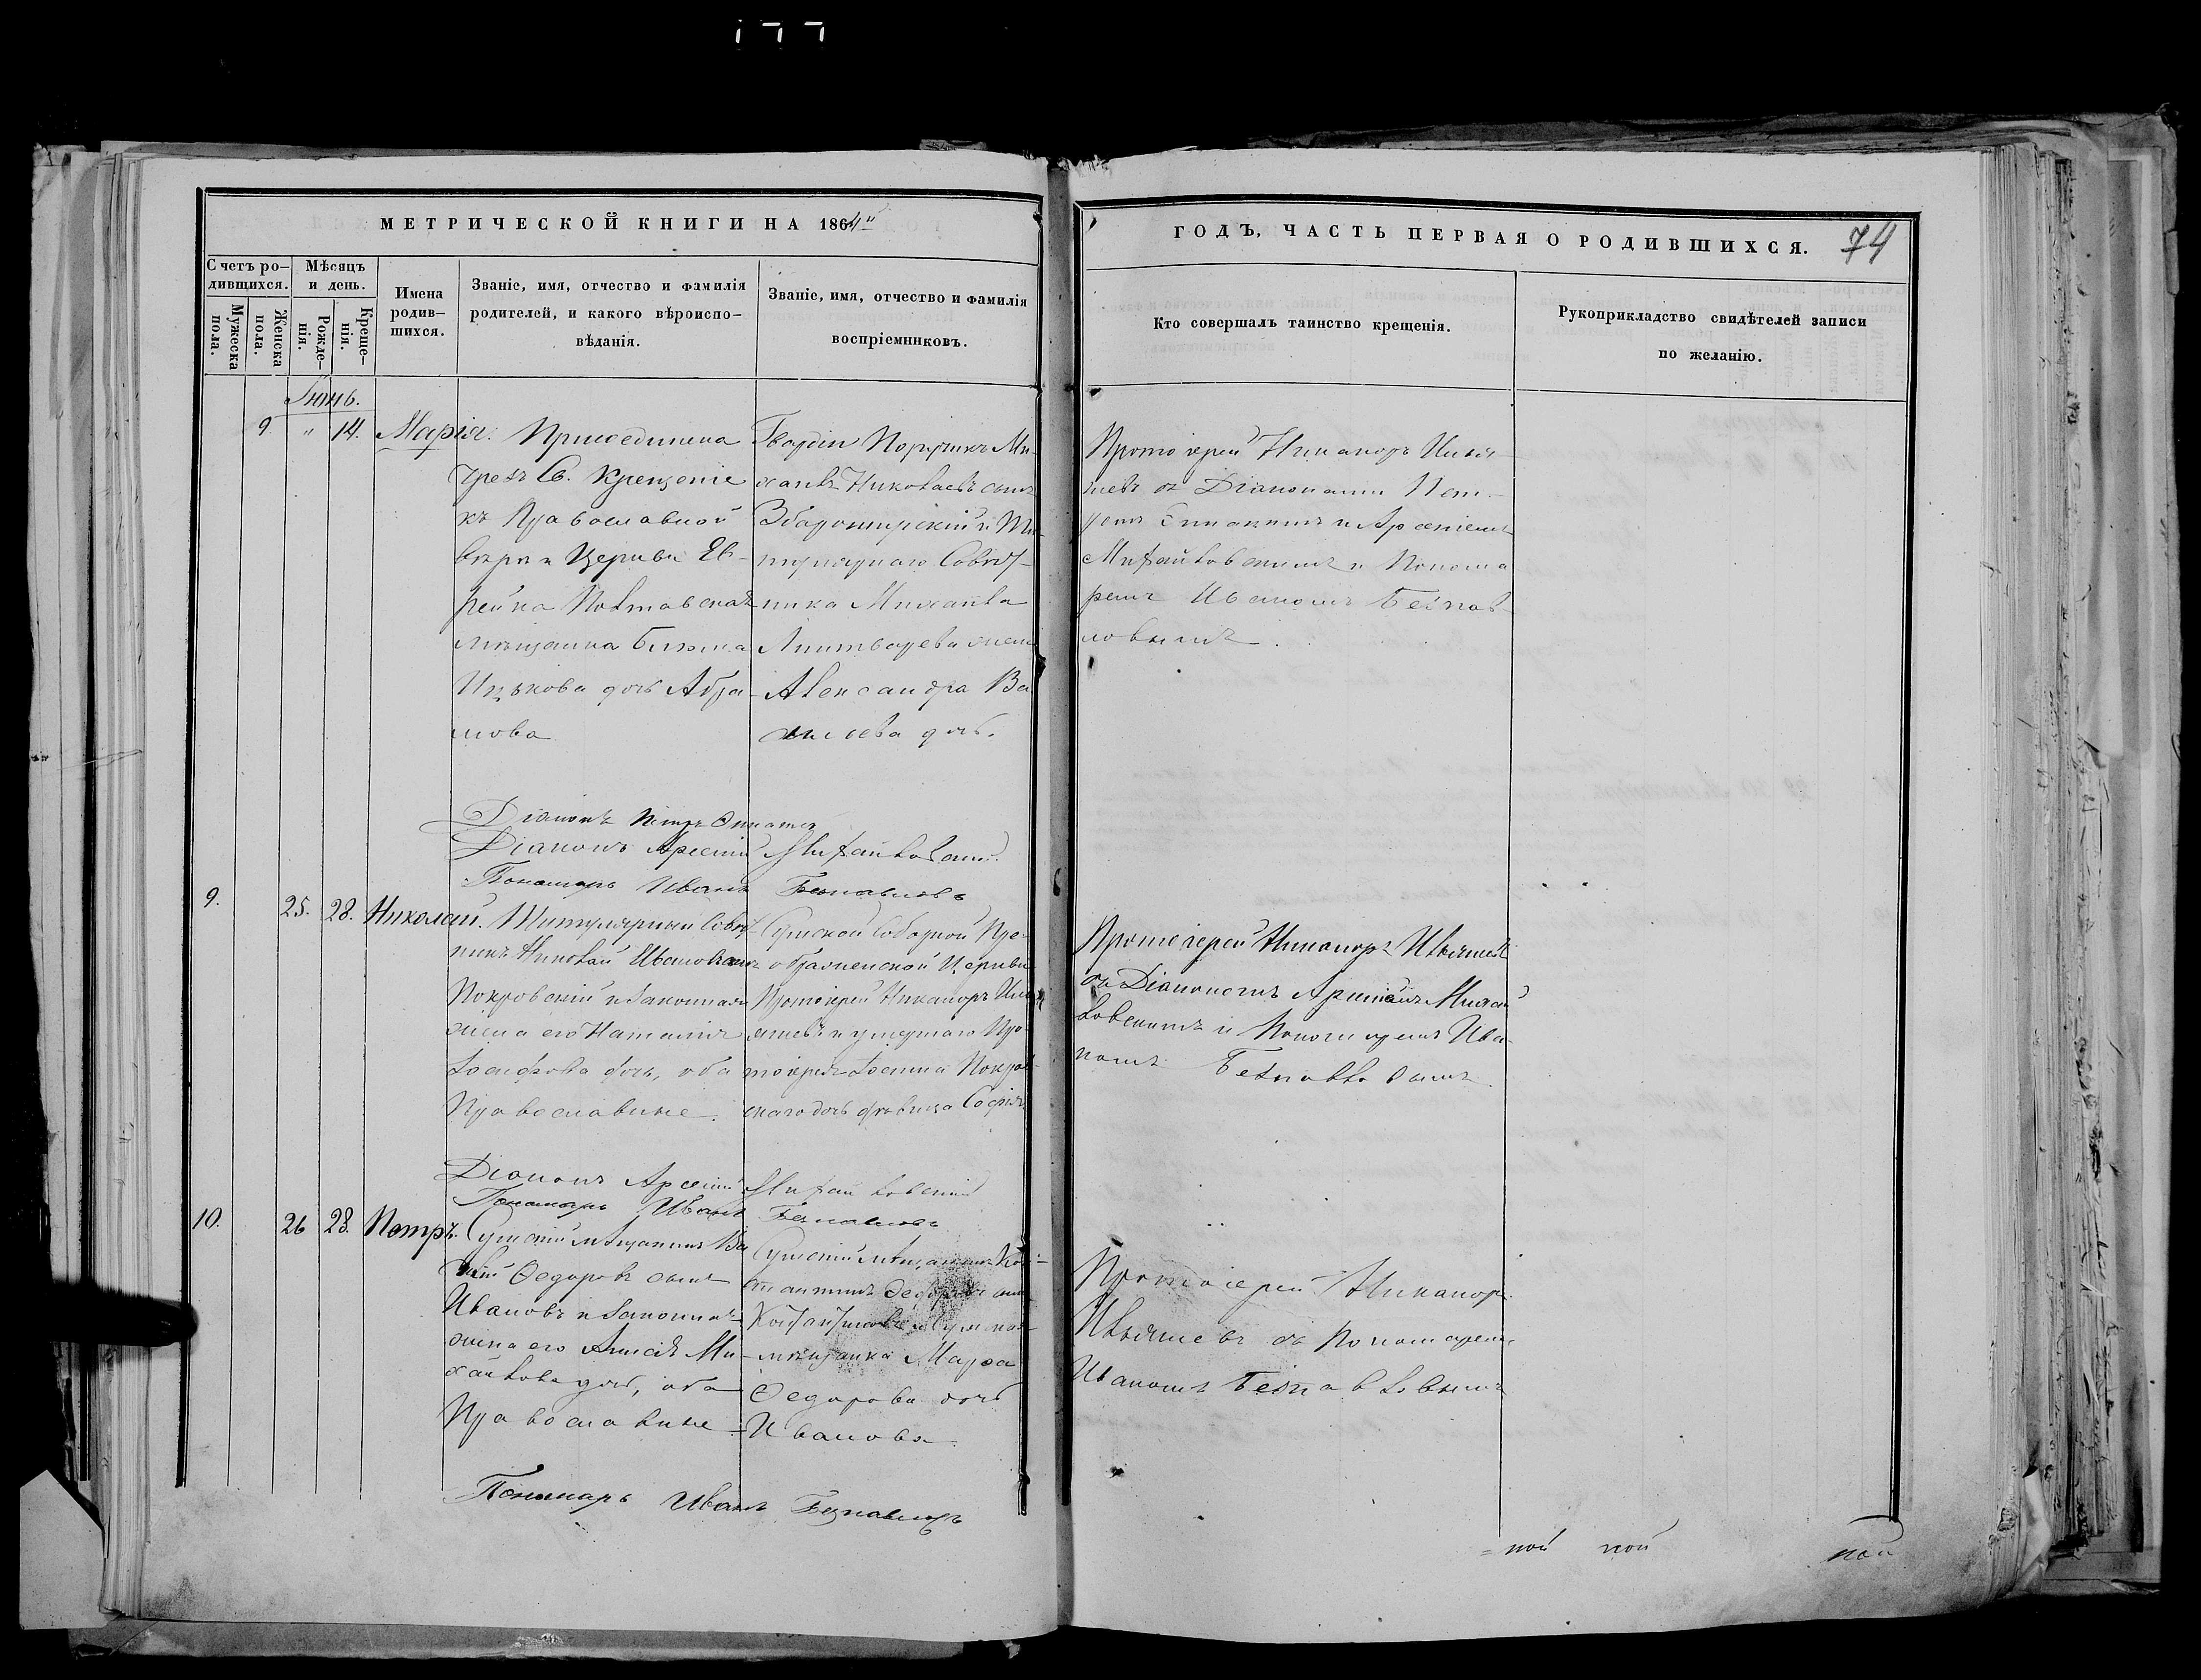 177
МЕТРИЧЕСКОЙ КНИГИ НА 1864й
ГОДЪ, ЧАСТЬ ПЕРВАЯ О РОДИВШИХСЯ.
74
Счетъ ро-
дившихся.
Мѣсяцъ
и день.
Мужеска
пола.
Женска
пола.
Рожде-
нія.
Креще-
нія.
Имена
родив-
шихся.
Званіе, имя, отчество и фамилія
родителей, и какого вѣроиспо-
вѣданія.
Званіе, имя, отчество и фамилія
воспріемниковъ.
Кто совершалъ таинство крещенія.
Рукоприкладство свидѣтелей записи
по желанію.
Іюнь.
9 " 14. Марія.
Присоединена
чрезъ Св. Крещеніе
къ Православной
вѣрѣ и Церкви Ев-
рейка Полтавская
мѣщанка
Ицькова дочь Абра-
мова
Гвардіи Поручикъ Ми-
хаилъ Николаевъ сынъ
и Ти-
тулярнаго Совѣт-
ника Михаила
Линтварева жена
Александра Ва
сильева дочь.
Протоіерей Никаноръ
съ Діаконами Пет-
ромъ и Арсеніемъ
Михайловскимъ и Понома
ремъ Иваномъ Безпав-
ловымъ.
Діаконъ Петръ
Діаконъ Арсеній Михайловскій
Пономарь Иванъ Безпавловъ
9. 25. 28. Николай.
Титулярный Совѣт-
никъ Николай Ивановичъ
Покровскій и законная
жена его Наталія
Іосифова дочь, оба
Православные.
Сумской Соборной Пре-
ображенской Церкви
Протоіерей Никаноръ
и умершаго Про-
тоіерея Іоанна Покров-
скаго дочь дѣвица Софія.
Протоіерей Никаноръ
съ Діакономъ Арсеніемъ Михай
ловскимъ и Пономаремъ Ива-
номъ Безпавловымъ.
Діаконъ Арсеній Михайловскій
Пономарь Иванъ Безпавловъ
10. 26 28. Петръ.
Сумскій мѣщанинъ Ва
Федоровъ сынъ
Ивановъ и законная
жена его Ми-
хайлова дочь, оба
Православные
Сумскій мѣщанинъ Кон-
стантинъ Федоровъ сынъ
и Сумская
мѣщанка Марѳа
Федорова дочь
Иванова.
Протоіерей Никаноръ
съ Пономаремъ
Иваномъ Безпавловымъ
Пономарь Иванъ Безпавловъ
= ной ной ной